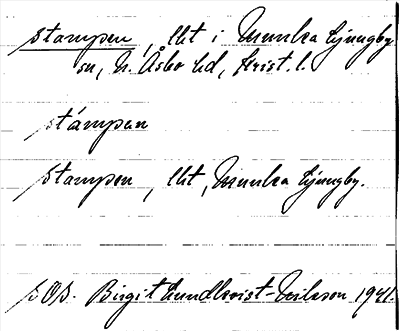 Stampen, lht i Munka Ljungby
sn, N. Åsbo hd, Krist. l.
stámpen
Stampen, lht, Munka Ljungby.
SOS. Birgit Lundkvist-Nilsson 1941.